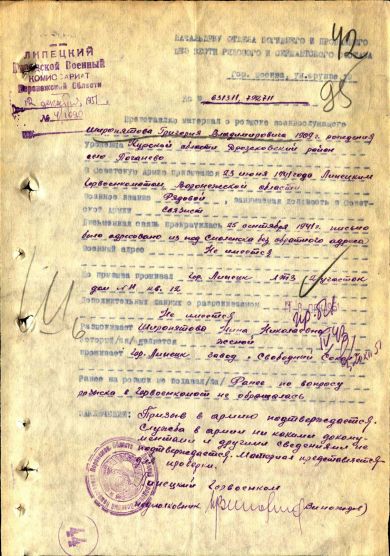 42
95
ЛИПЕЦКИЙ
Городской Военный
КОМИССАРИАТ
Воронежской Области
12 декабря 1951.
№ 4/1090
НАЧАЛЬНИКУ ОТДЕЛА ПОГИБШЕГО И ПРОПАВШЕГО
БЕЗ ВЕСТИ РЯДОВОГО И СЕРЖАНТСКОГО СОСТАВА
гор. Москва, ул.Фрунзе
Представляю материал о розыске военнослужащего
Широнятова Григория Владимировича 1909 г. рождения
уроженца Курской области Дрозсковский район
село Топаново
В Советскую Армию призван 23 июня 1941 года Липецким
Горвоенкоматом, Воронежской области
Военное звание Рядовой, занимаемая должность в Совет-
ской Армии связист
Письменная связь прекратилась 25 сентября 1941 г. письмо
было адресовано из под Смоленска без обратного адреса
Военный адрес Не имеется
До призыва проживал Гор. Липецк ЛТЗ
дом Л.Н кв. 12
Дополнительных данных о разыскиваемом
Не имеется
Разыскивает Широнятова Нина Николаевна
который/ая/является женой
проживает гор. Липецк завод "Свободный Сокол"
Ранее на розыск не подавал/ла/ Ранее по вопросу
розыска в Горвоенкомат не обращалась
ЗАКЛЮЧЕНИЕ: Призыв в армию подтверждается.
Служба в армии ни какими доку-
ментами и другими сведениями не
подтверждается. Материал представляется
для проверки.
Липецкий Горвоенком
подполковник (Виноградов)